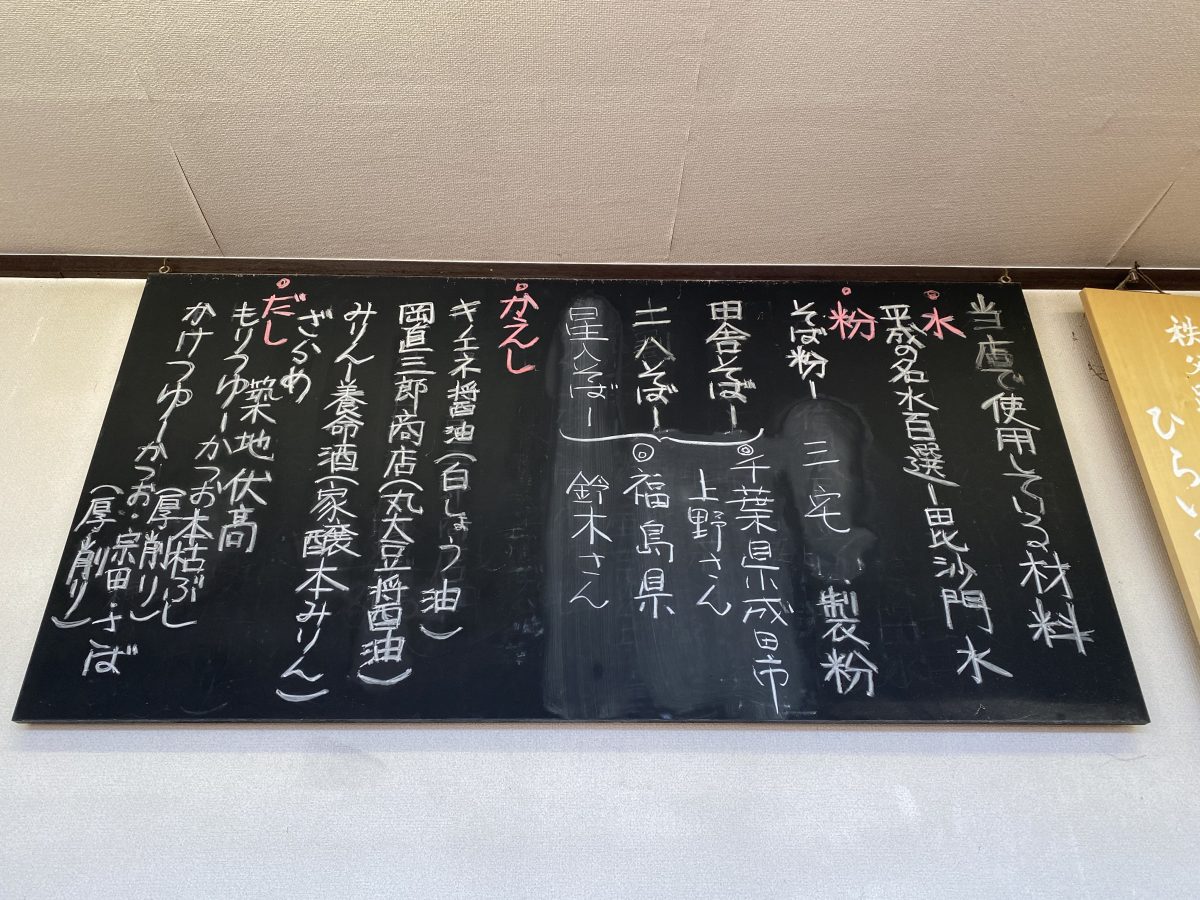 当店で使用している材料
◎水
平成の名水百選ー毘沙門水
◎粉
そば粉ー三宅製粉
田舎そばー
二八そばー
星入そばー
◎千葉県成田市
上野さん
◎福島県
鈴木さん
◎かえし
キノエネ醤油(白しょう油)
岡直三郎商店(丸大豆醤油)
みりんー養命酒(家醸本みりん)
ざらめ
◎だし
築地伏高
もりつゆーかつお本枯ぶし
(厚削り)
かけつゆーかつお・宗田・さば
(厚削り)
秩父
ひらい